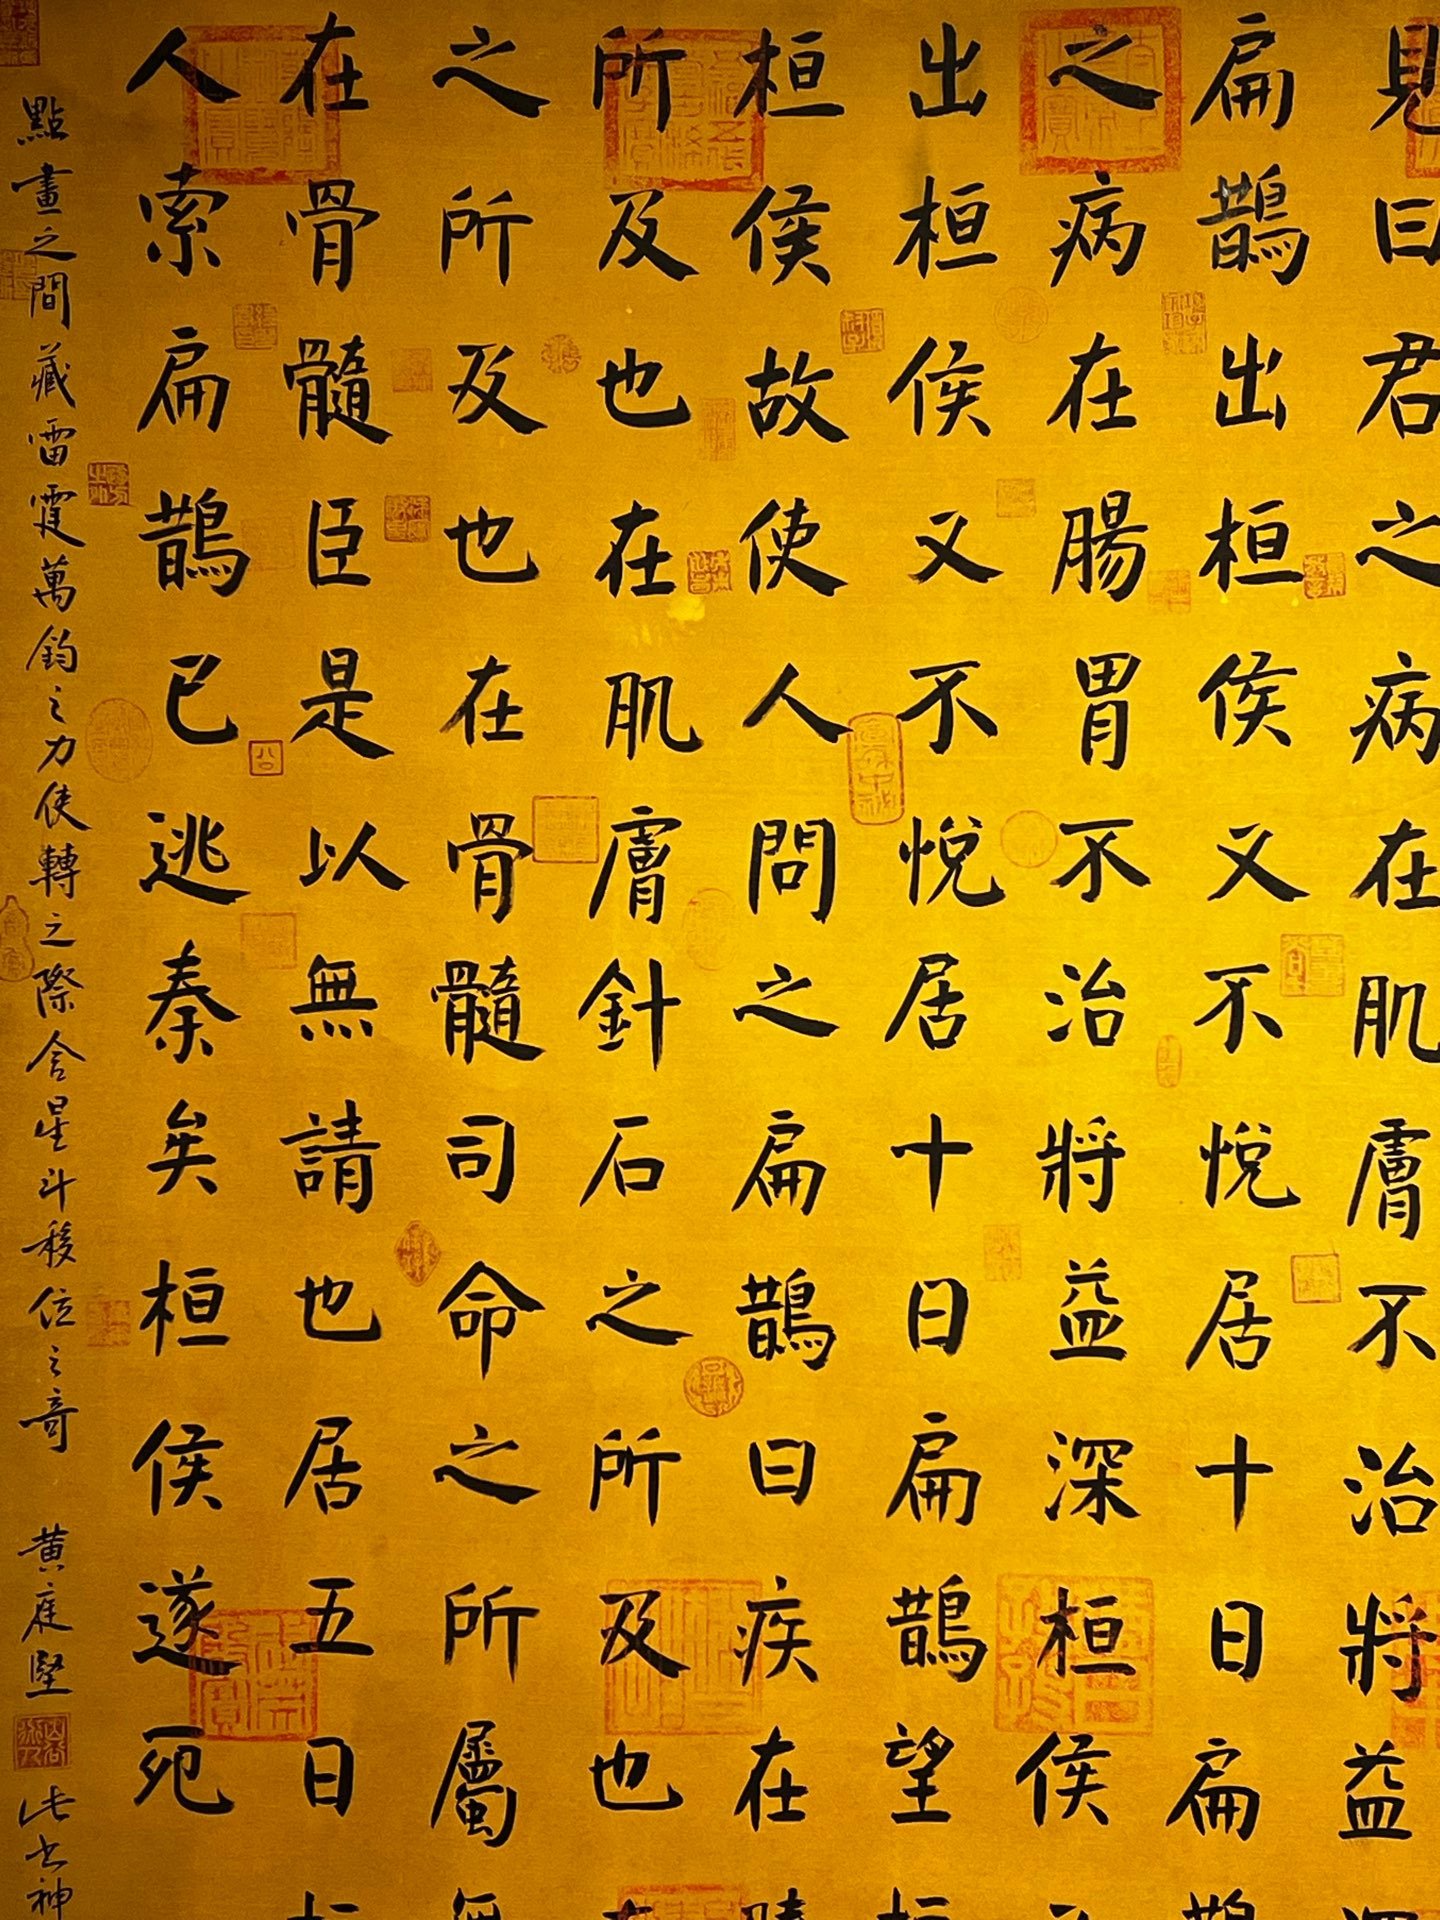 見曰君之病在肌膚不治將益深
扁鵲出桓侯又不悅居十日扁鵲
之病在腸胃不治將益深桓侯
出桓侯又不悅居十日扁鵲望桓
桓侯故使人問之扁鵲曰疾在
所及也在肌膚針石之所及也在
之所及也在骨髓司命之所屬無
在骨髓臣是以無請也居五日桓
人索扁鵲已逃秦矣桓侯遂死
點畫之間藏雷霆萬鈞之力使轉之際含星斗移位之奇 黄庭堅 此書神